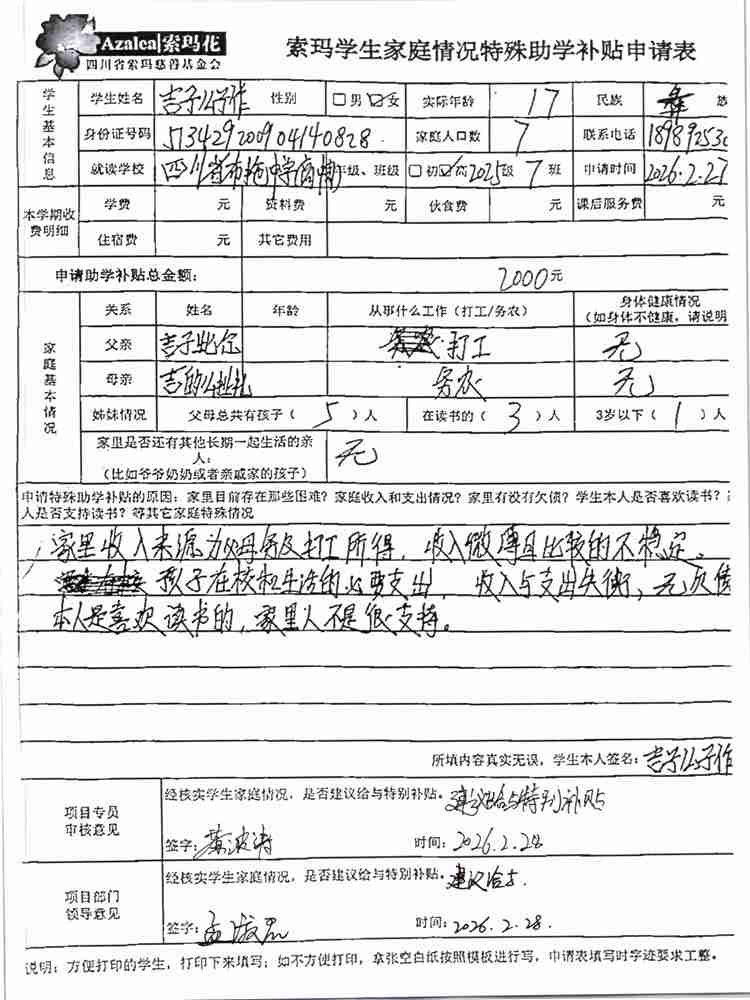 Azalea 索玛花
四川省索玛慈善基金会
索玛学生家庭情况特殊助学补贴申请表
学生基本信息
学生姓名 吉子么子作 性别 □男 ☑女 实际年龄 17 民族 彝 族
身份证号码 513429200904140828 家庭人口数 7 联系电话 18989253
就读学校 四川省布拖中学(高中) 年级、班级 □初☑高2025级 7 班 申请时间 2026.2.27
本学期收费明细
学费 元 资料费 元 伙食费 元 课后服务费 元
住宿费 元 其它费用
申请助学补贴总金额: 2000元
家庭基本情况
关系 姓名 年龄 从事什么工作(打工/务农) 身体健康情况
(如身体不健康,请说明
父亲 吉子此尔 打工 无
母亲 吉的么 务农 无
姊妹情况 父母总共有孩子( 5 )人 在读书的( 3 )人 3岁以下( 1 )人
家里是否还有其他长期一起生活的亲人:
(比如爷爷奶奶或者亲戚家的孩子) 无
申请特殊助学补贴的原因:家里目前存在那些困难?家庭收入和支出情况?家里有没有欠债?学生本人是否喜欢读书?
人是否支持读书?等其它家庭特殊情况
家里收入来源为父母务农及打工所得,收入微薄且比较的不稳定。
孩子在校和生活的必要支出,收入与支出失衡,无欠债
本人是喜欢读书的,家里人不是很支持。
所填内容真实无误,学生本人签名:吉子么子作
项目专员
审核意见
经核实学生家庭情况,是否建议给与特别补贴。建议给与特别补贴
签字:黄波涛 时间:2026.2.28
项目部门
领导意见
经核实学生家庭情况,是否建议给与特别补贴。建议给与.
签字: 时间:2026.2.28.
说明:方便打印的学生,打印下来填写;如不方便打印,拿张空白纸按照模板进行写,申请表填写时字迹要求工整。